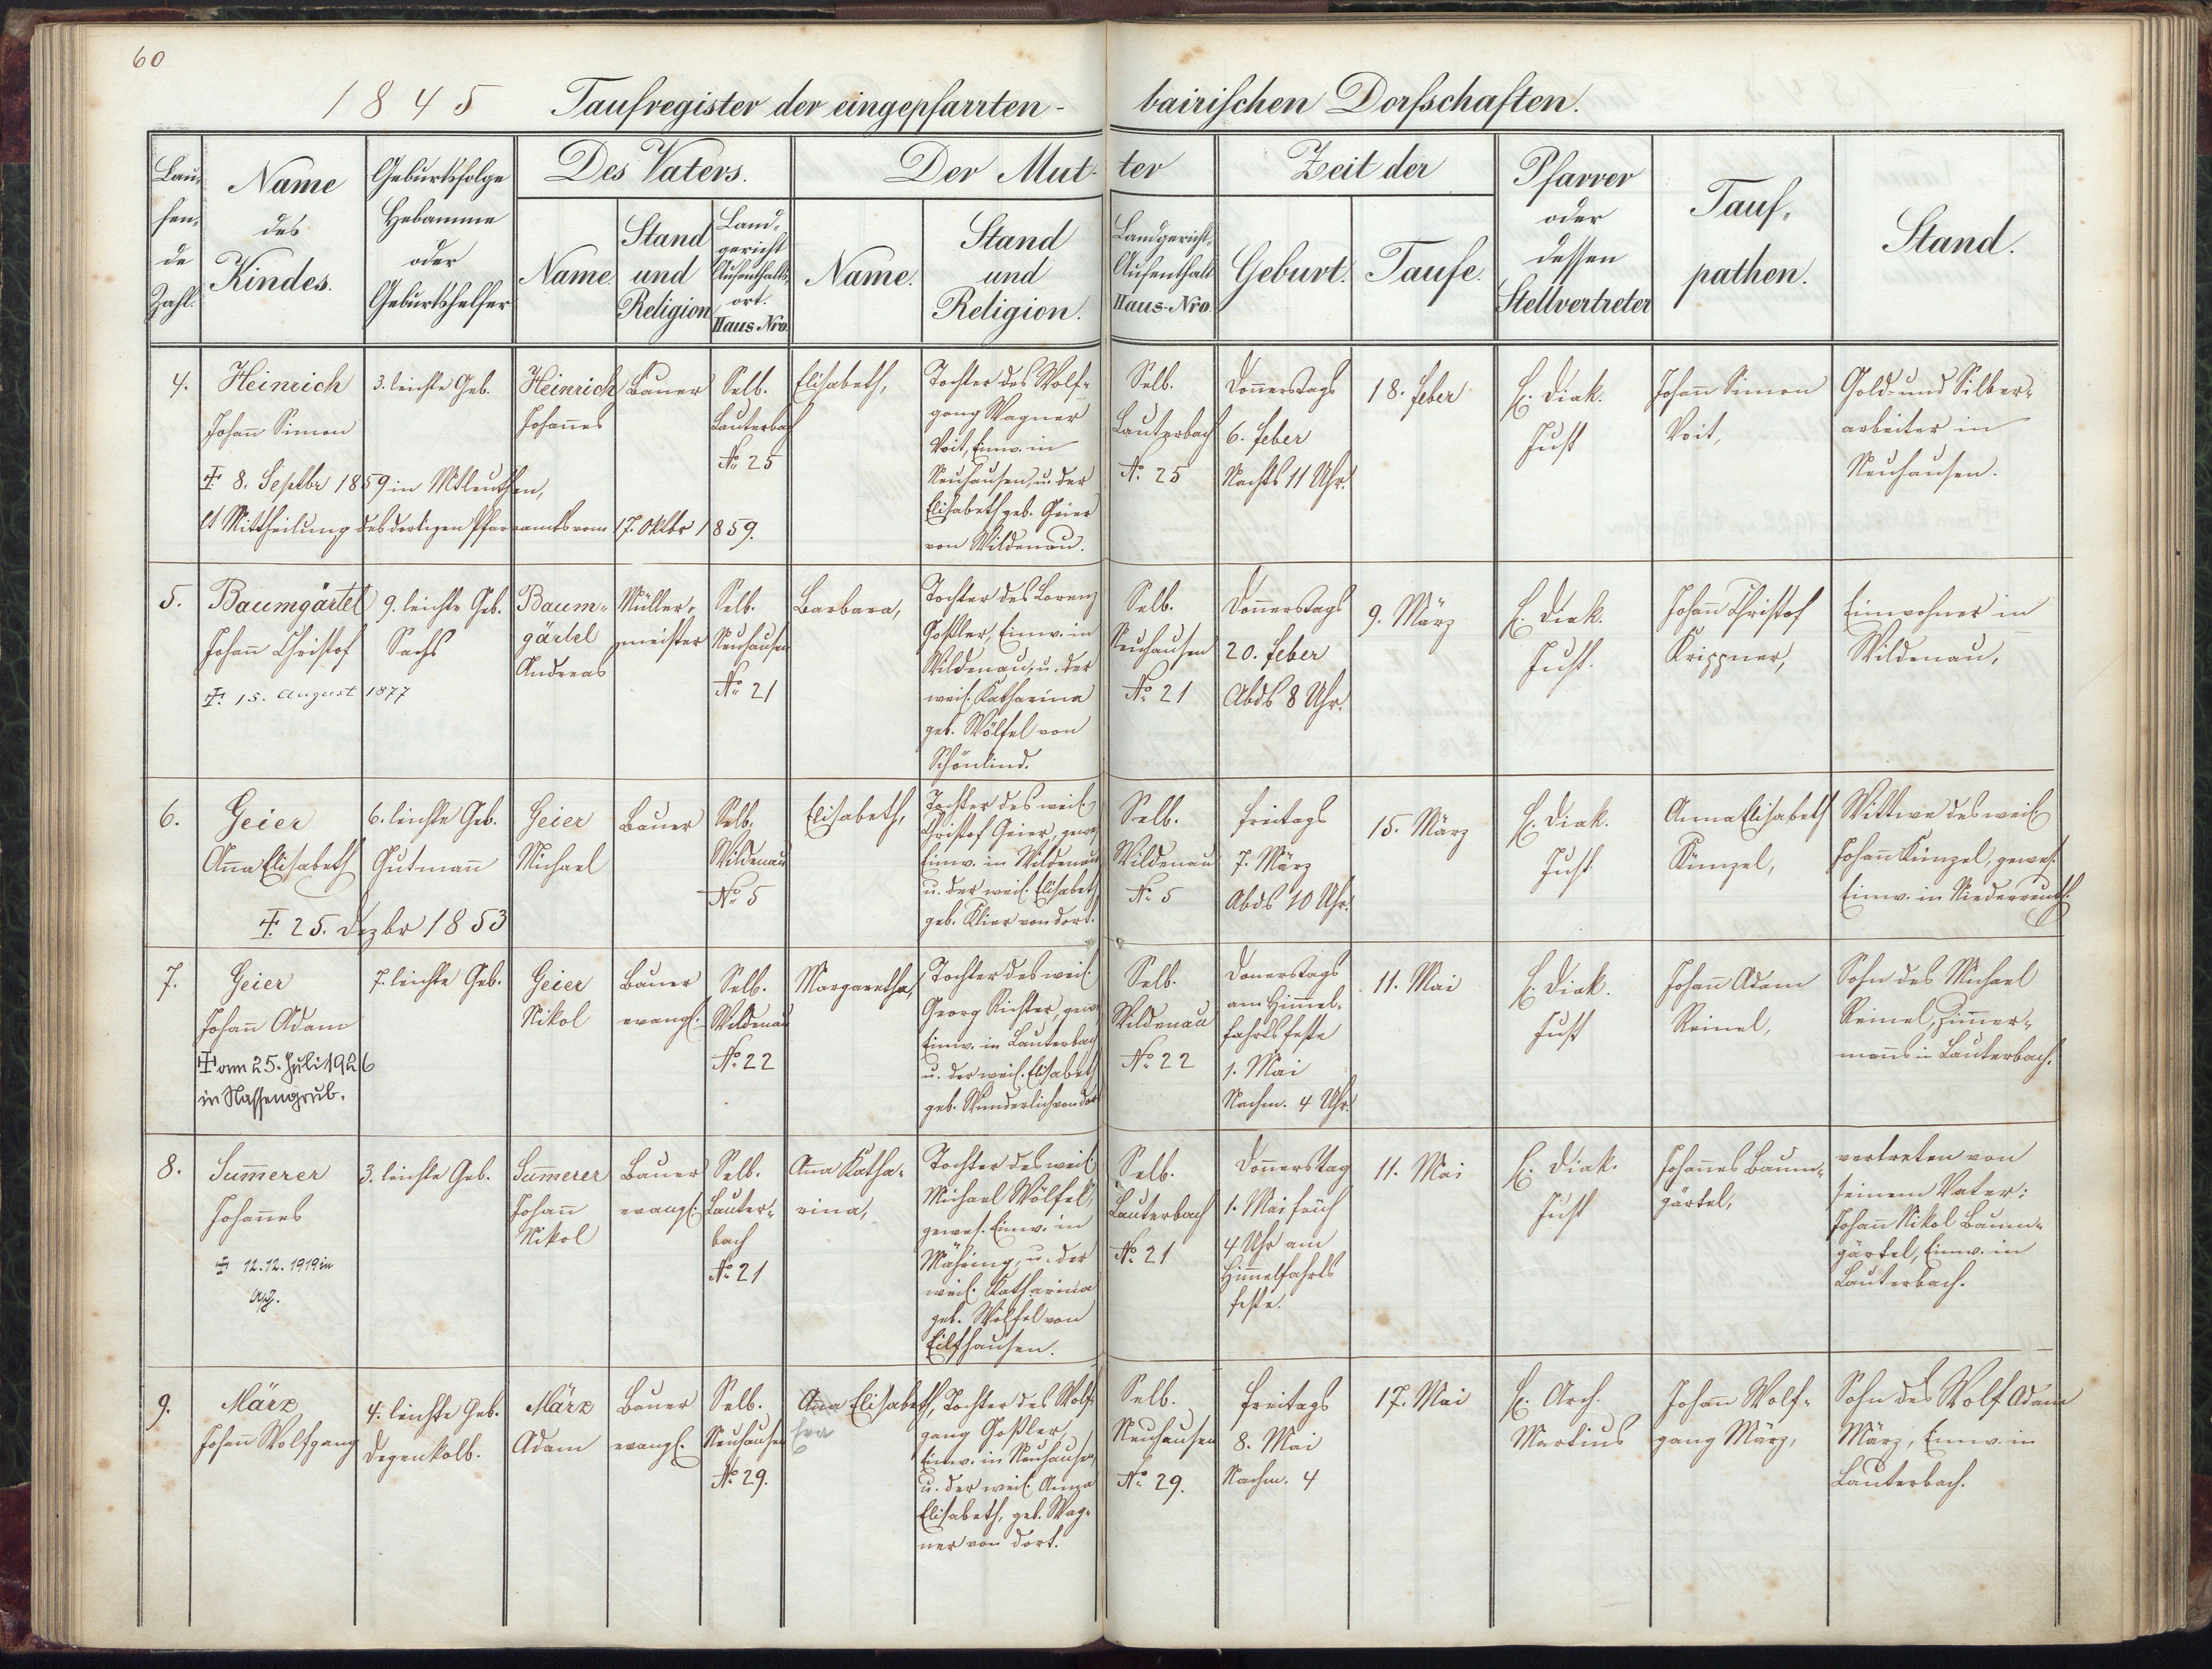 60
1845 Taufregister der eingepfarrten-bairischen Dorfschaften.
Laufende Zahl.
Name des Kindes.
Geburtsfolge Hebamme oder Geburtshelfer
Des Vaters.
Name.
Stand und Religion
Landgericht Aufenthalts-ort. Haus-Nro.
Der Mutter
Name.
Stand und Religion.
Landgericht, Aufenthalt Haus-Nro.
Zeit der
Geburt.
Taufe.
Pfarrer oder dessen Stellvertreter
Tauf-pathen.
Stand.
4.
Heinrich
Johañ Simon
8. Septbr 1859 in Mkleuthen,
lt Mittheilung des dortigen Pfarramts vom 17. Oktbr 1859.
3. leichte Geb.
Heinrich
Johañes
Bauer
Selb.
Lauterbach
No. 25
Elisabeth,
Tochter des Wolf-
gang Wagner
Voit, Einw. in
Neuhausen, u. der
Elisabeth geb. Geier
von Wildenau.
Selb.
Lauterbach
No. 25
Doñerstags
6. Feber
Nachts 11 Uhr.
18. Feber
H. Diak.
Just
Johañ Simon
Voit,
Gold- und Silber-
arbeiter in
Neuhausen.
5.
Baumgärtel
Johañ Christof
15. August 1877
9. leichte Geb.
Sachs
Baum-
gärtel
Andreas
Müller-
meister
Selb.
Neuhausen
No. 21
Barbara,
Tochter des Lorenz
Goßler, Einw. in
Wildenau, u. der
weil. Katharina
geb. Wölfel von
Schönlind.
Selb.
Neuhausen
No. 21
Doñerstags
20. Feber
Abds 8 Uhr.
9. März
H. Diak.
Just.
Johañ Christof
Krippner,
Einwohner in
Wildenau.
6.
Geier
Aña Elisabeth
25. Dezbr 1853
6. leichte Geb.
Gutmañ
Geier
Michael
Bauer
Selb.
Wildenau
No. 5
Elisabeth,
Tochter des weil.
Christof Geier, gewes.
Einw. in Wildenau
u. der weil. Elisabeth
geb. Klier von dort.
Selb.
Wildenau
No. 5
Freitags
7. März
Abds 10 Uhr.
15. März
H. Diak.
Just
Anna Elisabeth
Künzel,
Wittwe des weil.
Johañ Künzel, gewes.
Einw. in Niederreuth.
7.
Geier
Johañ Adam
am 25. Juli 1926
in Nassengrub.
7. leichte Geb.
Geier
Nikol
Bauer
evangl.
Selb.
Wildenau
No. 22
Margaretha,
Tochter des weil.
Georg Richter, gew.
Einw. in Lauterbach
u. der weil. Elisabeth
geb. Wunderlich von dort
Selb.
Wildenau
No. 22
Donerstags
am Him̃el-
fahrtsfeste
1. Mai
Nachm. 4 Uhr.
11. Mai
H. Diak.
Just
Johañ Adam
Reinel,
Sohn des Michael
Reinel, Zim̃er-
mañs in Lauterbach.
8.
Sum̃erer
Johañes
12.12.1919 in
3. leichte Geb.
Sum̃erer
Johañ
Nikol
Bauer
evangl.
Selb.
Lauter-
bach
No. 21
Aña Katha-
rina,
Tochter des weil.
Michael Wölfel,
gewes. Einw. in
Mähring, u. der
weil. Katharina
geb. Wölfel von
Eilfhausen.
Selb.
Lauterbach
No. 21
Doñerstag
1. Mai früh
4 Uhr am
Him̃elfahrts
feste.
11. Mai
H. Diak.
Just
Johañes Baum-
gärtel,
vertreten von
seinem Vater:
Johañ Nikol Baum-
gärtel, Einw. in
Lauterbach.
9.
März
Johañ Wolfgang
4. leichte Geb.
Degenkolb.
März
Adam
Bauer
evangl.
Selb.
Neuhausen
No. 29.
Aña Elisabeth,
Eva
Tochter des Wolf-
gang Goßler,
Einw. in Neuhausen,
u. der weil. Anna
Elisabeth, geb. Wag-
ner von dort.
Selb.
Neuhausen
No. 29.
Freitags
8. Mai
Nachm. 4
17. Mai
H. Arch.
Martius
Johañ Wolf-
gang März,
Sohn des Wolf Adam
März, Einw. in
Lauterbach.